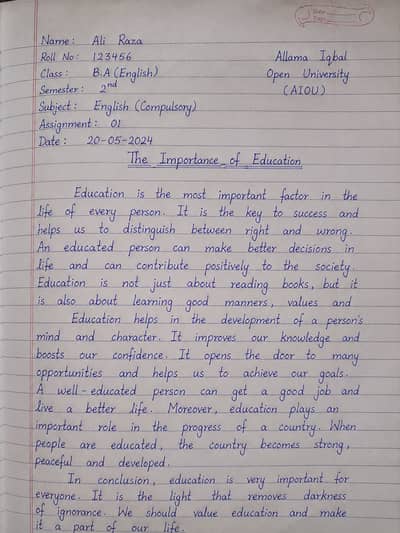 Name: Ali Raza
Roll No: 123456
Allama Iqbal
Class: B.A (English)
Open University
Semester: 2nd
(AIOU)
Subject: English (Compulsory)
Assignment: 01
Date: 20-05-2024
The Importance of Education
Education is the most important factor in the
life of every person. It is the key to success and
helps us to distinguish between right and wrong.
An educated person can make better decisions in
life and can contribute positively to the society.
Education is not just about reading books, but it
is also about learning good manners, values and
Education helps in the development of a person's
mind and character. It improves our knowledge and
boosts our confidence. It opens the door to many
opportunities and helps us to achieve our goals.
A well-educated person can get a good job and
live a better life. Moreover, education plays an
important role in the progress of a country. When
people are educated, the country becomes strong,
peaceful and developed.
In conclusion, education is very important for
everyone. It is the light that removes darkness
of ignorance. We should value education and make
it a part of our life.